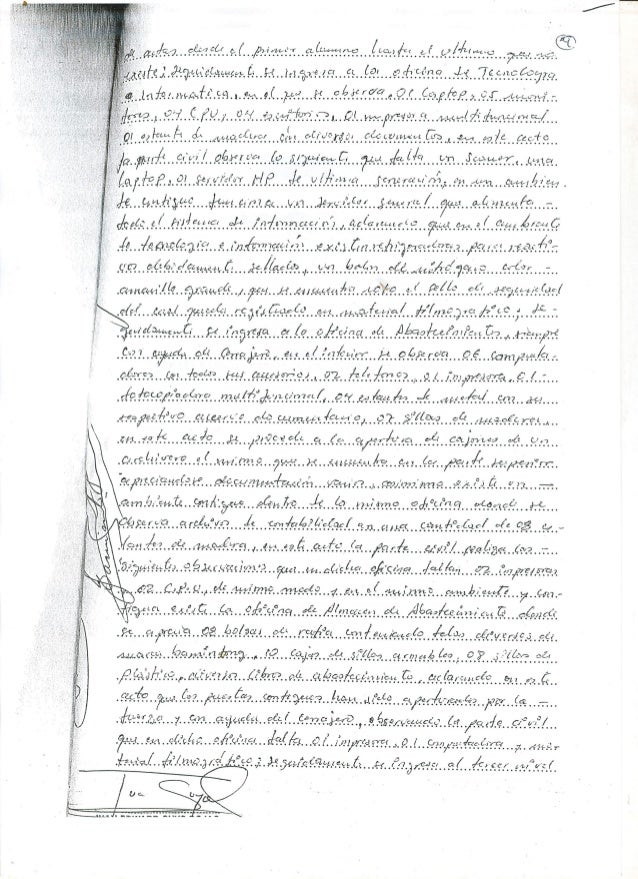 de actas desde el primer alumno hasta el ultimo que no
existe; seguidamente se ingresa a la oficina de Tecnologia
e Informatica, en el que se observa, 01 laptop, 05 moni-
tores, 04 CPU, 04 escritorios, 01 impresora multifuncional
01 estante de madera con diversos documentos, en este acto
la parte civil observa lo siguiente que falta un scaner, una
laptop, 01 servidor HP de ultima generación, en un ambien-
te contiguo funciona un servidor general que alimenta -
todo el sistema de información, aclarando que en el ambiente
de tecnologia e información existen refrigeradoras para reacti-
vos debidamente sellados, un balon de nitrógeno color -
amarillo grande, que se encuentra roto el sello de seguridad
del cual queda registrado en material filmografico; se-
guidamente se ingresa a la oficina de Abastecimientos, siempre
con ayuda de cerrajero, en el interior se observa 06 computa-
doras con todos sus accesorios, 02 telefonos, 01 impresora, 01 -
fotocopiadora multifuncional, 04 estantes de metal con su
respectivo acervo documentario, 07 sillas de madera,
en este acto se procede a la apertura de cajones de un
archivero el mismo que se encuentra en la parte superior
apreciandose documentación varia, asimismo existe un -
ambiente contiguo dentro de la misma oficina donde se
observa archivos de contabilidad en una cantidad de 08 es-
tantes de madera, en este acto la parte civil realiza las -
siguientes observaciones que en dicha oficina faltan 02 impresoras
y 02 C.P.U, de mismo modo y en el mismo ambiente y con-
tigua existe la oficina de Almacen de Abastecimiento donde
se aprecia 08 bolsas de rafia conteniendo telas diversas de
marca bamintong, 10 cajas de sillas armables, 08 sillas de
plastico, diversos libros de abastecimiento, aclarando en este
acto que las puertas contiguas han sido aperturadas por la -
fuerza y con ayuda del cerrajero, observando la parte civil
que en dicha oficina falta 01 impresora, 01 computadora y ma-
terial filmográfico; seguidamente se ingresa al tercer nivel